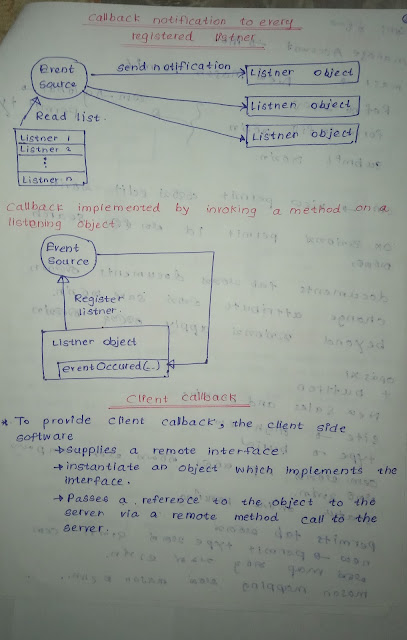 Callback notification to every
registered listner.
Event
source
send notification
Listner object
Listner object
Listner object
Read list.
Listner 1
Listner 2
⋮
Listner n
Callback implemented by invoking a method on a
listening object
Event
Source
Register
listner.
Listner object
eventOccured(..)
Client callback
* To provide client calback, the client side
software
→supplies a remote interface
→instantiate an object which implements the
interface.
→Passes a reference to the object to the
server via a remote method call to the
server.